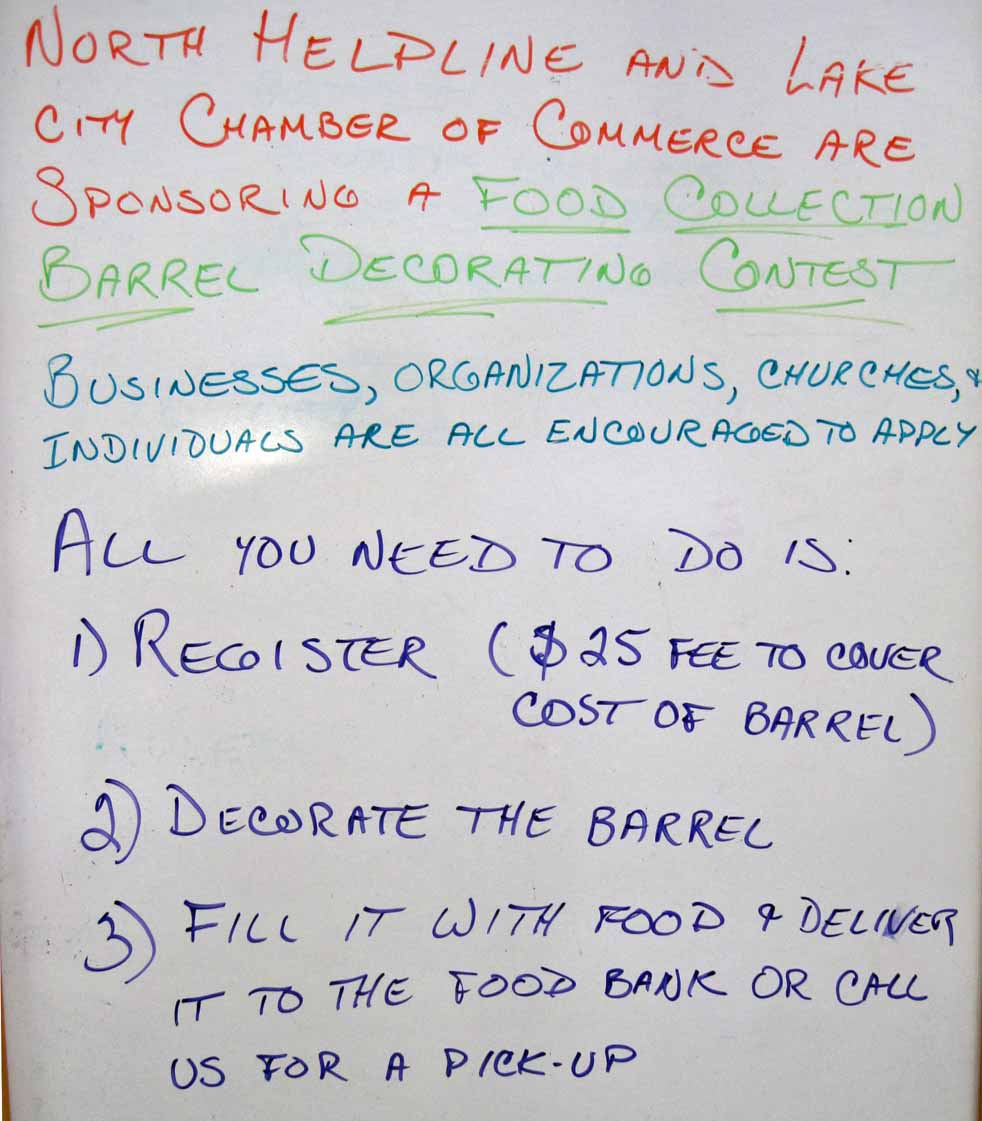 NORTH HELPLINE AND LAKE
CITY CHAMBER OF COMMERCE ARE
SPONSORING A FOOD COLLECTION
BARREL DECORATING CONTEST
BUSINESSES, ORGANIZATIONS, CHURCHES, &
INDIVIDUALS ARE ALL ENCOURAGED TO APPLY
ALL YOU NEED TO DO IS:
1) REGISTER ($25 FEE TO COVER
COST OF BARREL)
2) DECORATE THE BARREL
3) FILL IT WITH FOOD & DELIVER
IT TO THE FOOD BANK OR CALL
US FOR A PICK-UP